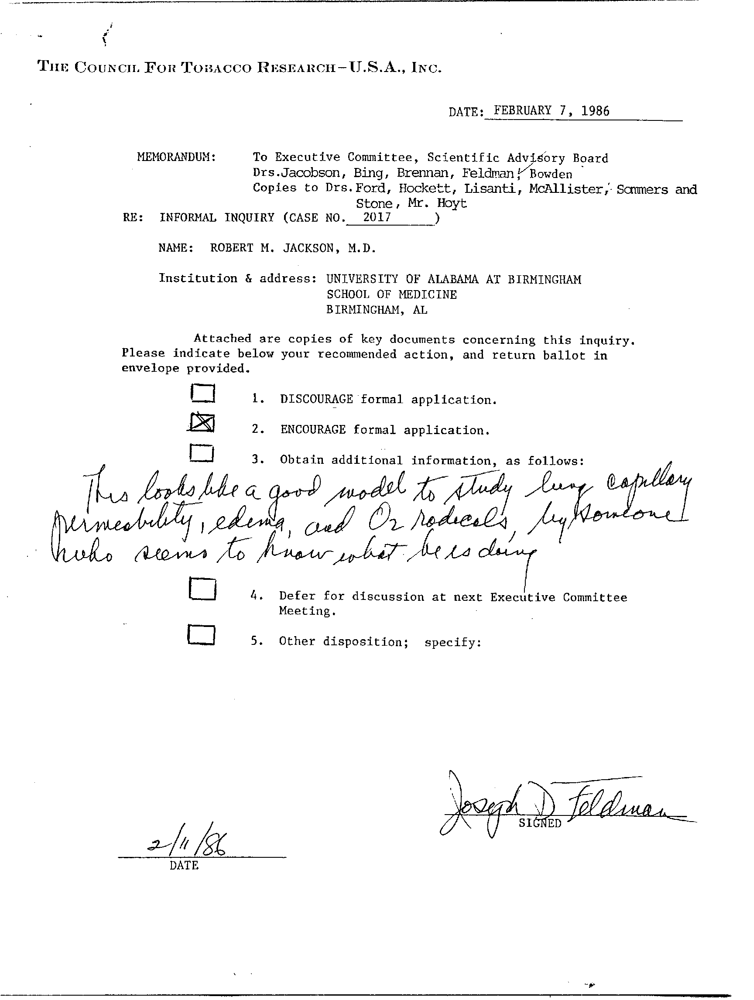 THE COUNCIL FOR TOBACCO RESEARCH-U.S.A., INC.
DATE: FEBRUARY 7, 1986
MEMORANDUM: To Executive Committee, Scientific Advisory Board
Drs. Jacobson, Bing, Brennan, Feldman, Bowden
Copies to Drs. Ford, Hockett, Lisanti, McAllister, Sommers and
Stone, Mr. Hoyt
RE: INFORMAL INQUIRY (CASE NO. 2017 )
NAME: ROBERT M. JACKSON, M.D.
Institution & address: UNIVERSITY OF ALABAMA AT BIRMINGHAM
SCHOOL OF MEDICINE
BIRMINGHAM, AL
Attached are copies of key documents concerning this inquiry.
Please indicate below your recommended action, and return ballot in
envelope provided.
1. DISCOURAGE formal application.
2. ENCOURAGE formal application.
3. Obtain additional information, as follows:
This looks like a good model to study lung capillary
permeability, edema, and O2 radicals, by someone
who seems to know what he is doing
4. Defer for discussion at next Executive Committee
Meeting.
5. Other disposition; specify:
Joseph D Feldman
SIGNED
2/11/86
DATE